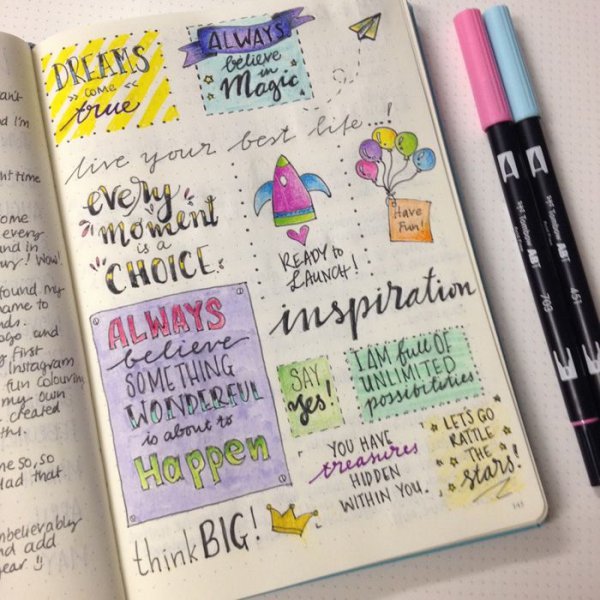 DREAMS
come
true
ALWAYS
believe
in
Magic
live your best life...!
every
moment
is a
CHOICE.
READY to
LAUNCH!
Have
Fun!
inspiration
ALWAYS
believe
SOMETHING
WONDERFUL
is about to
Happen
SAY
yes!
I AM full OF
UNLIMITED
possibilities
YOU HAVE
treasures
HIDDEN
WITHIN YOU.
LET'S GO
RATTLE
THE
stars!
think BIG!
can't
nd I'm
time
ome
every
und in
found my
name to
nds.
ogo and
First
Instagram
fun colouring
my own
created
so, so
Had that
unbelievably
nd add
year. ü
A
Tombow ABT
703
A
Tombow ABT
451